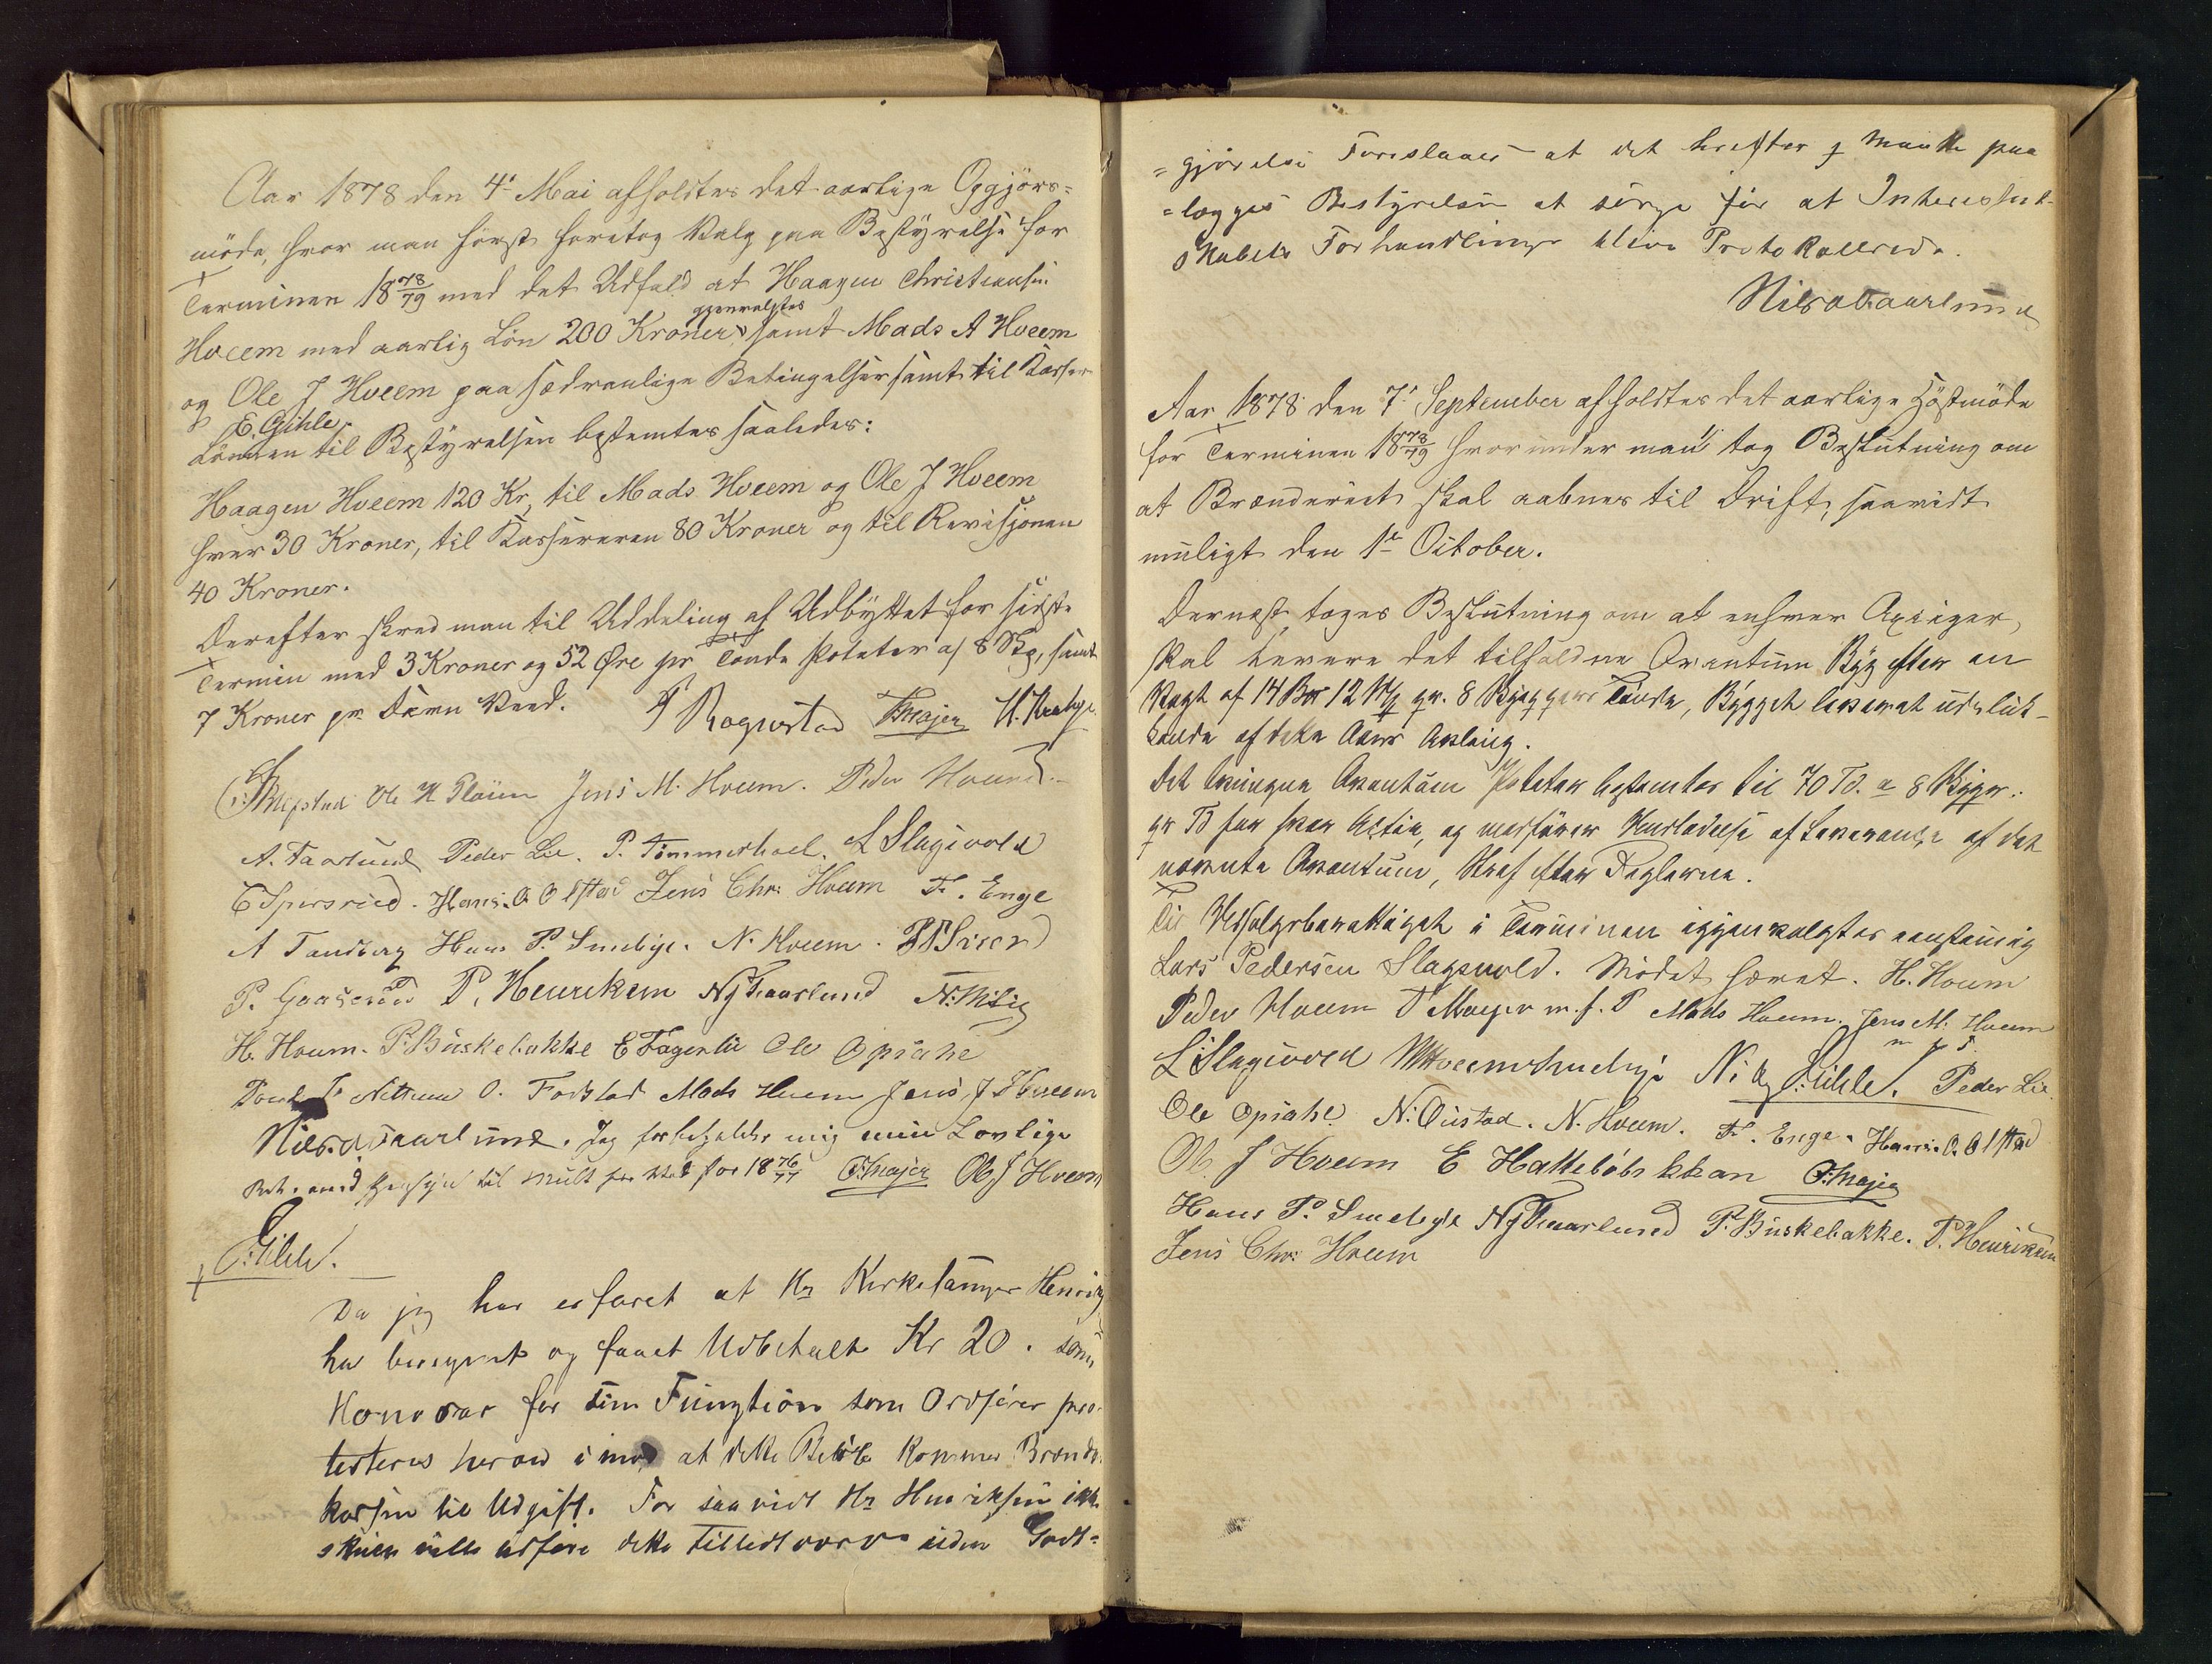 Aar 1878 den 4de Mai afholdtes det aarlige Opgjørs=
møde, hvor man først foretog Valg paa Bestyrelse for
Terminen 18 78/79 med det Udfald at Haagen Christiansen
Hveem med aarlig Løn 200 Kroner gjenvalgtes samt Mads A Hveem
og Ole J Hveem paa sædvanlige Betingelser samt til Kasserer
E. Gihle.
Lønnen til Bestyrelsen bestemtes saaledes:
Haagen Hveem 120 Kr, til Mads Hveem og Ole J Hveem
hver 30 Kroner, til Kassereren 80 Kroner og til Revisjonen
40 Kroner.
Derefter skred man til Uddeling af Udbyttet for sidste
Termin med 3 Kroner og 52 Øre pr Tønde Poteter af 8 Skp, samt
7 Kroner pr. Favn Veed. P Rognstad Majer
Ole H Pløien Jens M. Hveem. Peder Hveem
A. Taarlund Peder Lie. P. Tømmerhoel. L Slagsvold
Hans. O. Olstad Jens Chr: Hveem F. Enge
A Tandberg Hans P. Smebye. N. Hveem.
P. Henriksen N J Taarlund
H. Hveem. P. Buskebakke E Fagerlie Ole Opsahl
O. Forstad Mads Hveem Jens J Hveem
Nils. A Taarlund. Jeg forbeholder mig min Lovlige
Ret. med Hensyn til Mult for Ved for 18 76/77 O. Majer Ole J Hveem
E. Gihle.
Da jeg har erfaret at Hr Kirkesanger Henrik
har beregnet og faaet Udbetalt Kr 20. som
Honorar for sin Fungtion som Ordfører pro=
testeres herved imod at dette Beløb kommer Brænde
kassen til Udgift. For saavidt Hr Henriksen ikke
skulde ville udføre dette Tillidshverv uden Godt=
=gjørelse Foreslaaes at det herefter maatte paa
=lægges Bestyrelsen at sørge for at Interessent-
skabets Forhandlinger blive Protokollerede.
Nils A Taarlund
Aar 1878 den 7de September afholdtes det aarlige Høstmøde
for Terminen 18 78/79 hvorunder man tog Beslutning om
at Brænderiet skal aabnes til Drift, saavidt
muligt den 1te October.
Dernæst toges Beslutning om at enhver Axieier,
skal levere det tilfaldne Qvantum Byg efter en
Vægt af 14 Bpd 12 Mk pr. 8 Skjeppers Tønde, Bygget leveret udeluk-
kende af dette Aars Avling.
Det tvungne Qvantum Poteter bestemtes til 70 Td. a 8 Skjepper
pr Td for hver Actie, og medfører Undladelse af Leverance af det
nævnte Qvantum, Straf efter Reglerne.
Til Udsalgsbestyrer i Terminen igjenvalgtes eenstemmig
Lars Pedersen Slagsvold. Mødet hævet. H. Hveem
Peder Hveem O Majer m. f. P Mads Hveem. Jens M. Hveem
m f P
L Slagsvold E. Gihle. Peder Lie
Ole Opsahl N. Oustad. N. Hveem. F. Enge. Hans. O. Olstad
Ole J Hveem E Hattebølsbakken O. Majer
Hans P. Smebye N J Taarlund P. Buskebakke. P. Henriksen
Jens Chr: Hveem